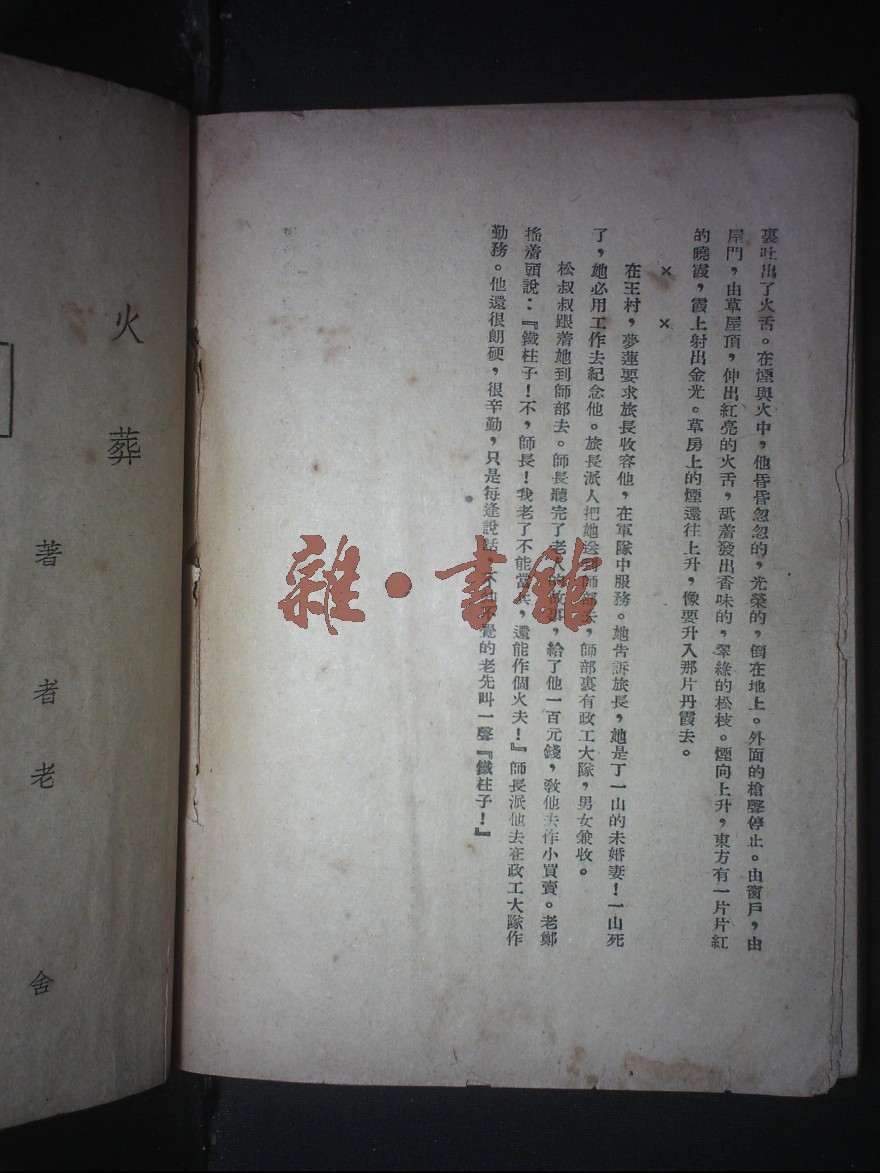 裏吐出了火舌。在煙與火中，他昏昏忽忽的，光榮的，倒在地上。外面的槍聲停止。由窗戶，由
屋門，由草屋頂，伸出紅亮的火舌，舐着發出香味的，翠綠的松枝。煙向上升，東方有一片片紅
的曉霞，霞上射出金光。草房上的煙還往上升，像要升入那片丹霞去。
× ×
在王村，夢蓮要求旅長收容他，在軍隊中服務。她告訴旅長，她是丁一山的未婚妻！一山死
了，她必用工作去紀念他。旅長派人把她送到師部去，師部裏有政工大隊，男女兼收。
松叔叔跟着她到師部去。師長聽完了老人的故，給了他一百元錢，敎他去作小買賣。老鄭
搖着頭說：『鐵柱子！不，師長！我老了不能當兵，還能作個火夫！』師長派他去在政工大隊作
勤務。他還很朗硬，很辛勤，只是每逢說話，覺的老先叫一聲『鐵柱子！』
火葬
老舍
者
著
雜·書館